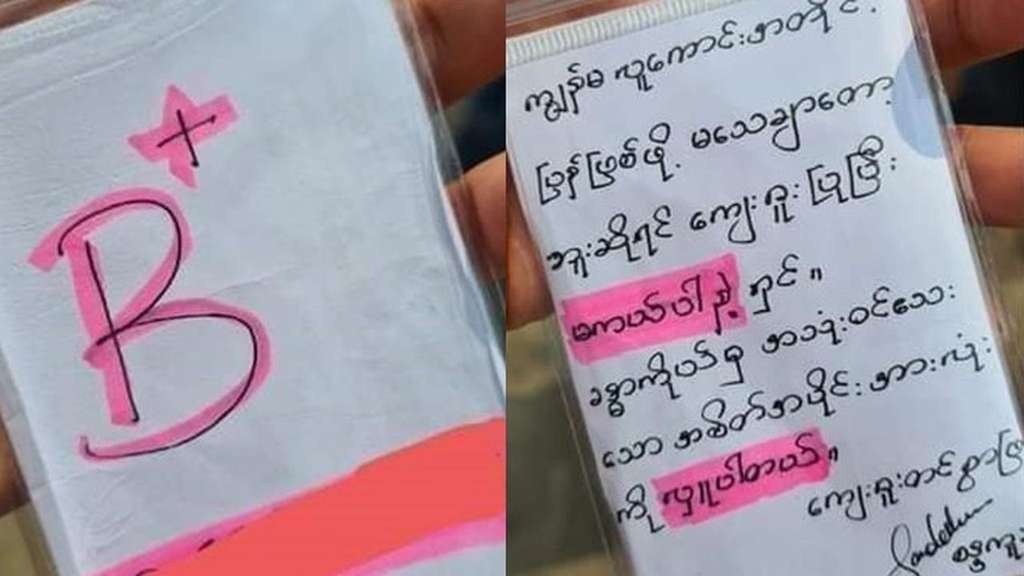 +
B
ကျွန်မ လူကောင်းအတိုင်း
ပြန်ဖြစ်ဖို့ မသေချာတော့
ဘူးဆိုရင် ကျေးဇူးပြုပြီး
မကယ်ပါနဲ့ ရှင်။
ခန္ဓာကိုယ်မှ အသုံးဝင်သေး
သော အစိတ်အပိုင်းအားလုံး
ကို လှူပါတယ်။
ကျေးဇူးတင်စွာဖြ